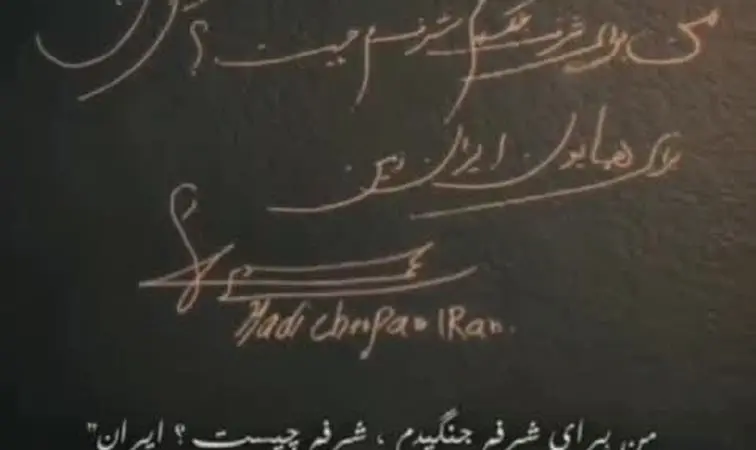 من برای شرفم جنگیدم شرفم چیست؟
برای همایون ایران زمین
Hadi choopan IRan.
من برای شرفم جنگیدم ، شرفم چیست ؟ ایران"